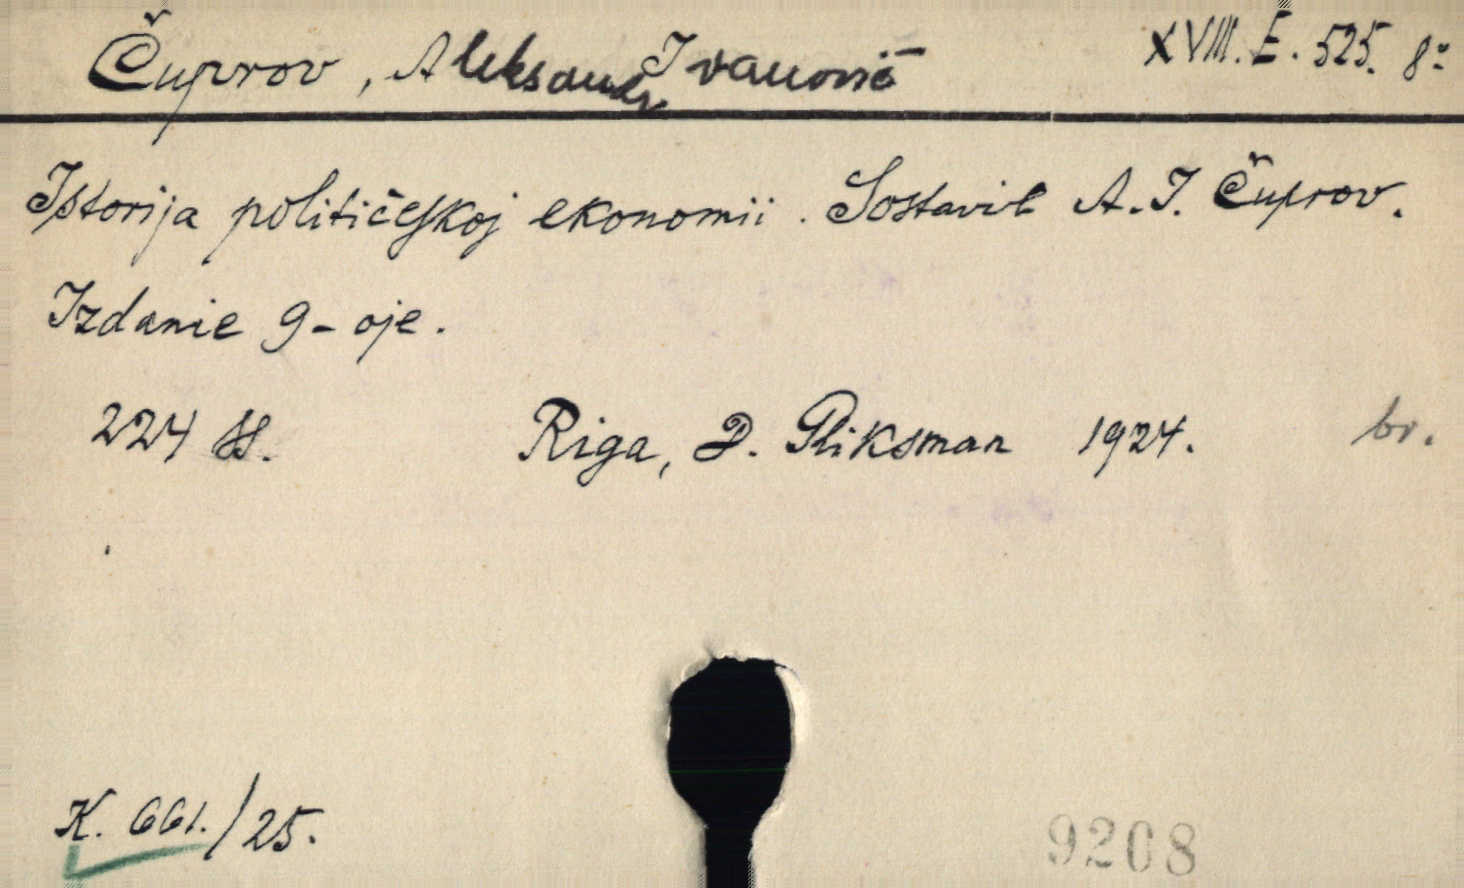 Čuprov, Aleksandr Ivanovič XVIII. E. 525. 8º
Istorija političeskoj ekonomii. Sostavil A. I. Čuprov.
Izdanie 9-oje.
224 SS. Riga, D. Gliksman 1924. br.
K. 661./25.
9208